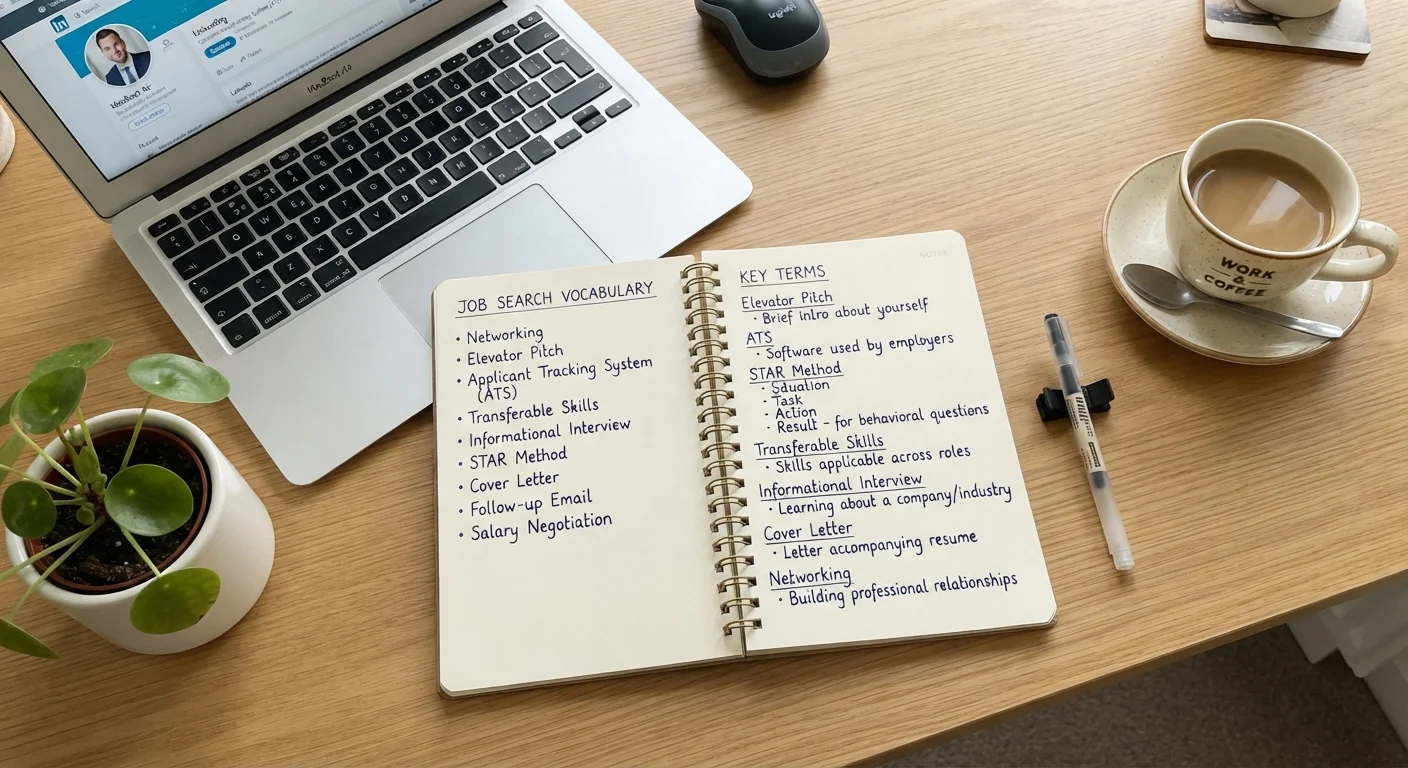 JOB SEARCH VOCABULARY
• Networking
• Elevator Pitch
• Applicant Tracking System
(ATS)
• Transferable Skills
• Informational Interview
• STAR Method
• Cover Letter
• Follow-up Email
• Salary Negotiation
NOTES
KEY TERMS
Elevator Pitch
• Brief intro about yourself
ATS
• Software used by employers
STAR Method
• Sduation
• Task
• Action
• Result - for behavioral questions
Transferable Skills
• Skills applicable across roles
Informational Interview
• Learning about a company/industry
Cover Letter
• Letter accompanying resume
Networking
• Building professional relationships
WORK
&
COFFEE
in